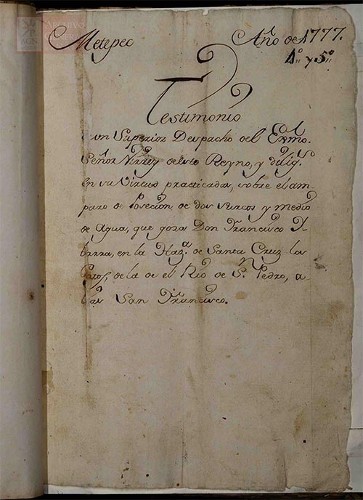 Metepec Año de 1777.
4º y 5º
Testimonio
un Superior Despacho del Exmo.
Señor Virrey de este Reyno, y dilig.s
en su Virtud practicadas, sobre el am-
paro de Posecion de dos Surcos y medio
de Agua, que goza Don Francisco Y-
barra, en la Haz.da de Santa Cruz los
Patos, de la de el Rio de S. Pedro, a
San Francisco.